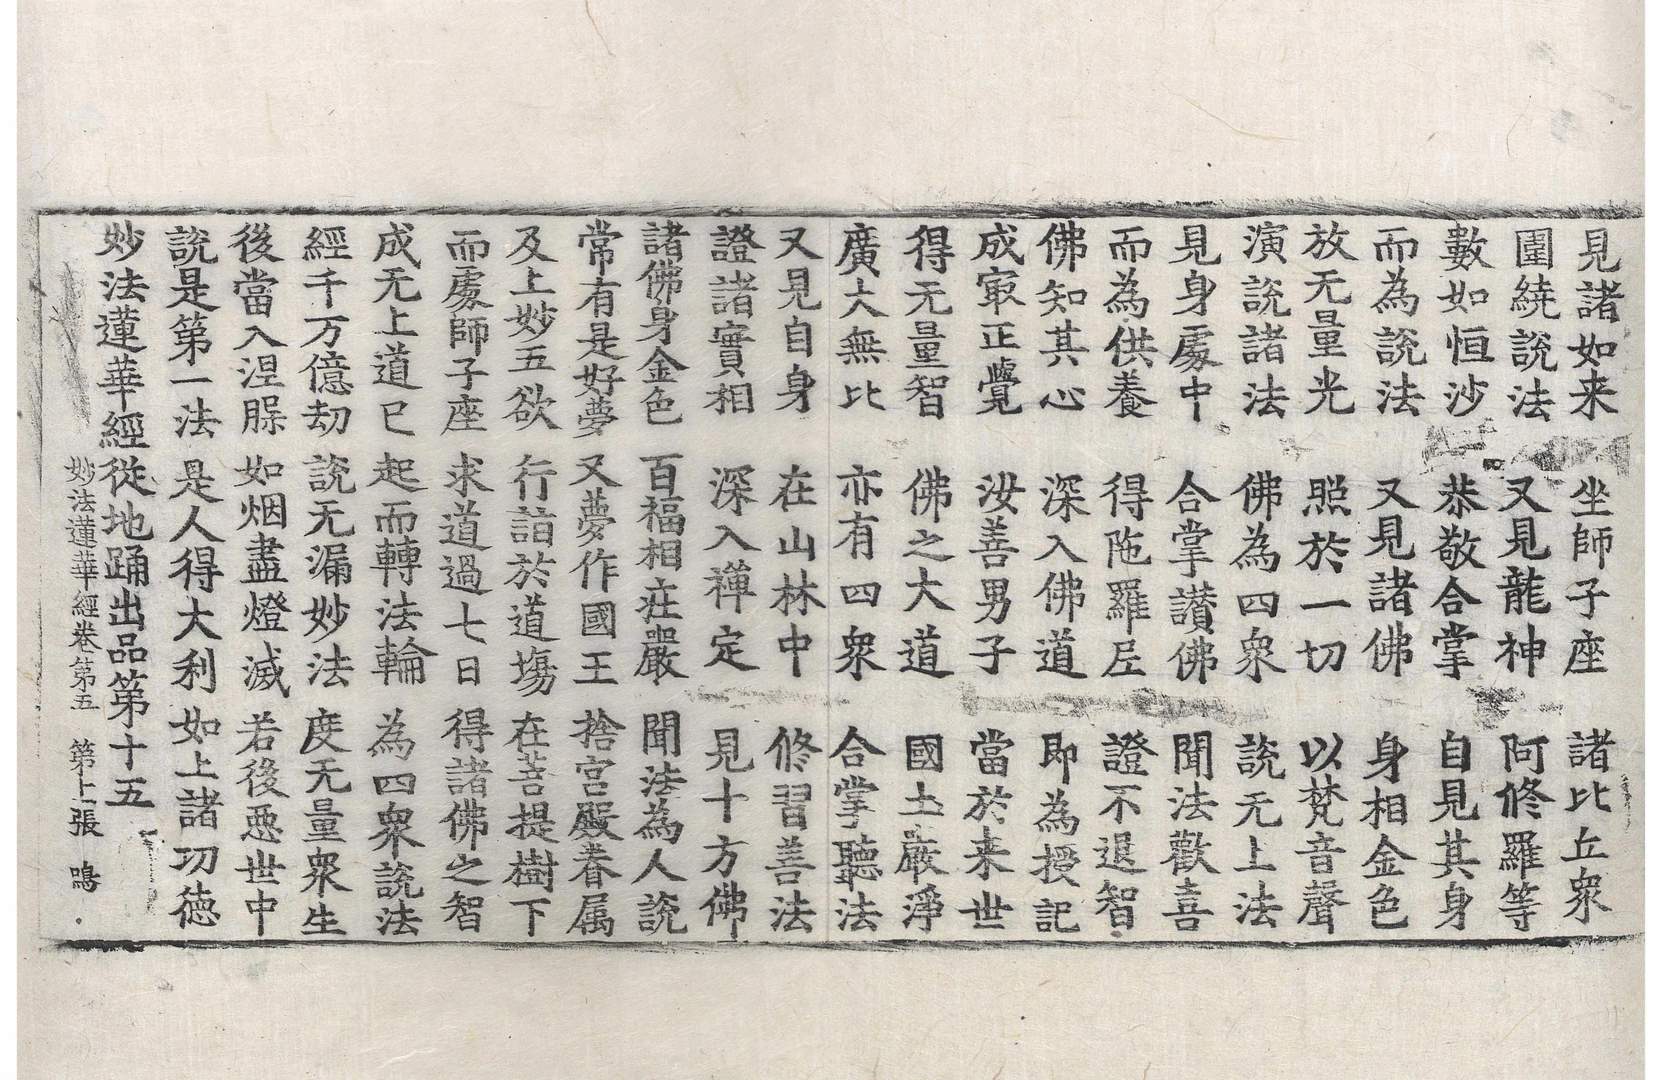 見諸如来 坐師子座 諸比丘衆
圍繞說法 又見龍神 阿修羅等
數如恒沙 恭敬合掌 自見其身
而為說法 又見諸佛 身相金色
放无量光 照於一切 以梵音聲
演說諸法 佛為四衆 說无上法
見身處中 合掌讃佛 聞法歡喜
而為供養 得陁羅尼 證不退智
佛知其心 深入佛道 即為授記
成冣正覺 汝善男子 當於来世
得无量智 佛之大道 國土嚴淨
廣大無比 亦有四衆 合掌聽法
又見自身 在山林中 修習善法
證諸實相 深入禪定 見十方佛
諸佛身金色 百福相莊嚴 聞法為人說
常有是好夢 又夢作國王 捨宮殿眷属
及上妙五欲 行詣於道塲 在菩提樹下
而處師子座 求道過七日 得諸佛之智
成无上道已 起而轉法輪 為四衆說法
經千万億劫 說无漏妙法 度无量衆生
後當入涅槃 如烟盡燈滅 若後悪世中
說是第一法 是人得大利 如上諸功徳
妙法蓮華經從地踊出品第十五
妙法蓮華經卷第五 第上張 鳴